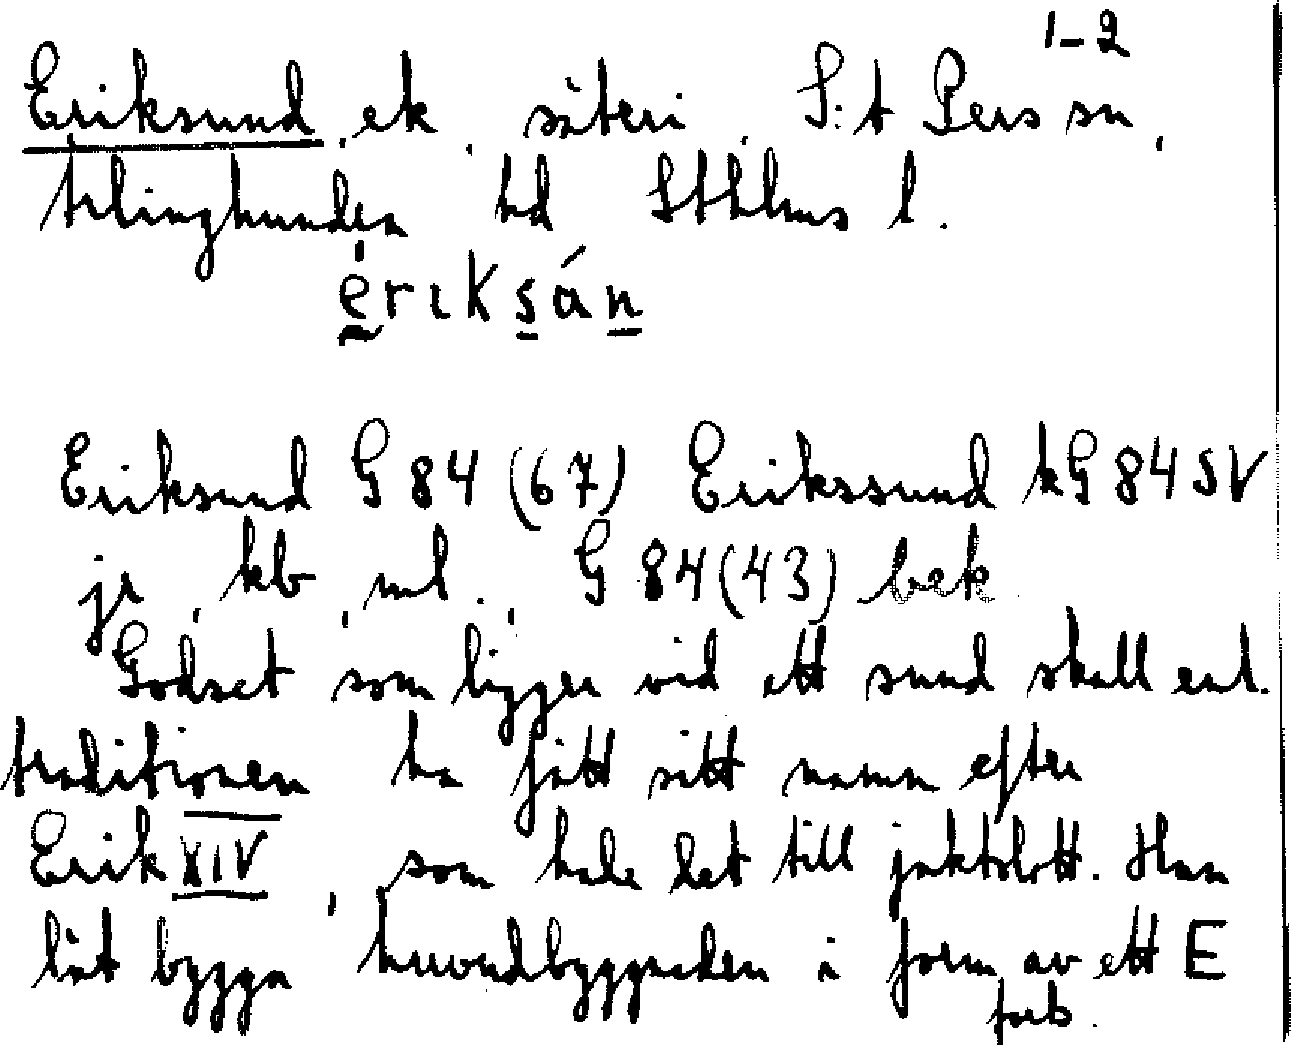 1-2
Eriksund, ek, säteri, S:t Pers sn,
Ärlinghundra hd Sthlms l.
ėrıksán
Eriksund G 84 (67) Erikssund kG 84 SV
jr, kb, ml., G 84 (43) bek
Godset som ligger vid ett sund skall enl.
traditionen ha fått sitt namn efter
Erik XIV, som hade det till jaktslott. Han
lät bygga huvudbyggnaden i form av ett E
forts.